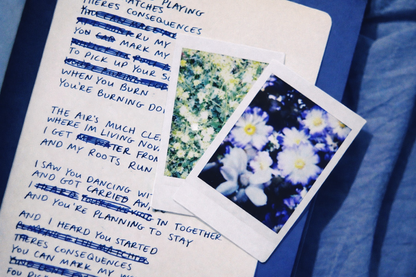 ATCHES PLAYING
THERES CONSEQUENCES
RU MY
YOU CAN MARK MY
TO PICK UP YOUR
WHEN YOU BURN
YOU'RE BURNING DO
THE AIR'S MUCH CLE
WHERE I'M LIVING NOW
I GET WATER FRO
AND MY ROOTS RUN
I SAW YOU DANCING WI
AND GOT CARRIED AW
IN TOGETHER
AND YOU'RE PLANNING TO STAY
AND I HEARD YOU STARTED
THERES CONSEQUENCES
YOU CAN MARK MY W
YOUR